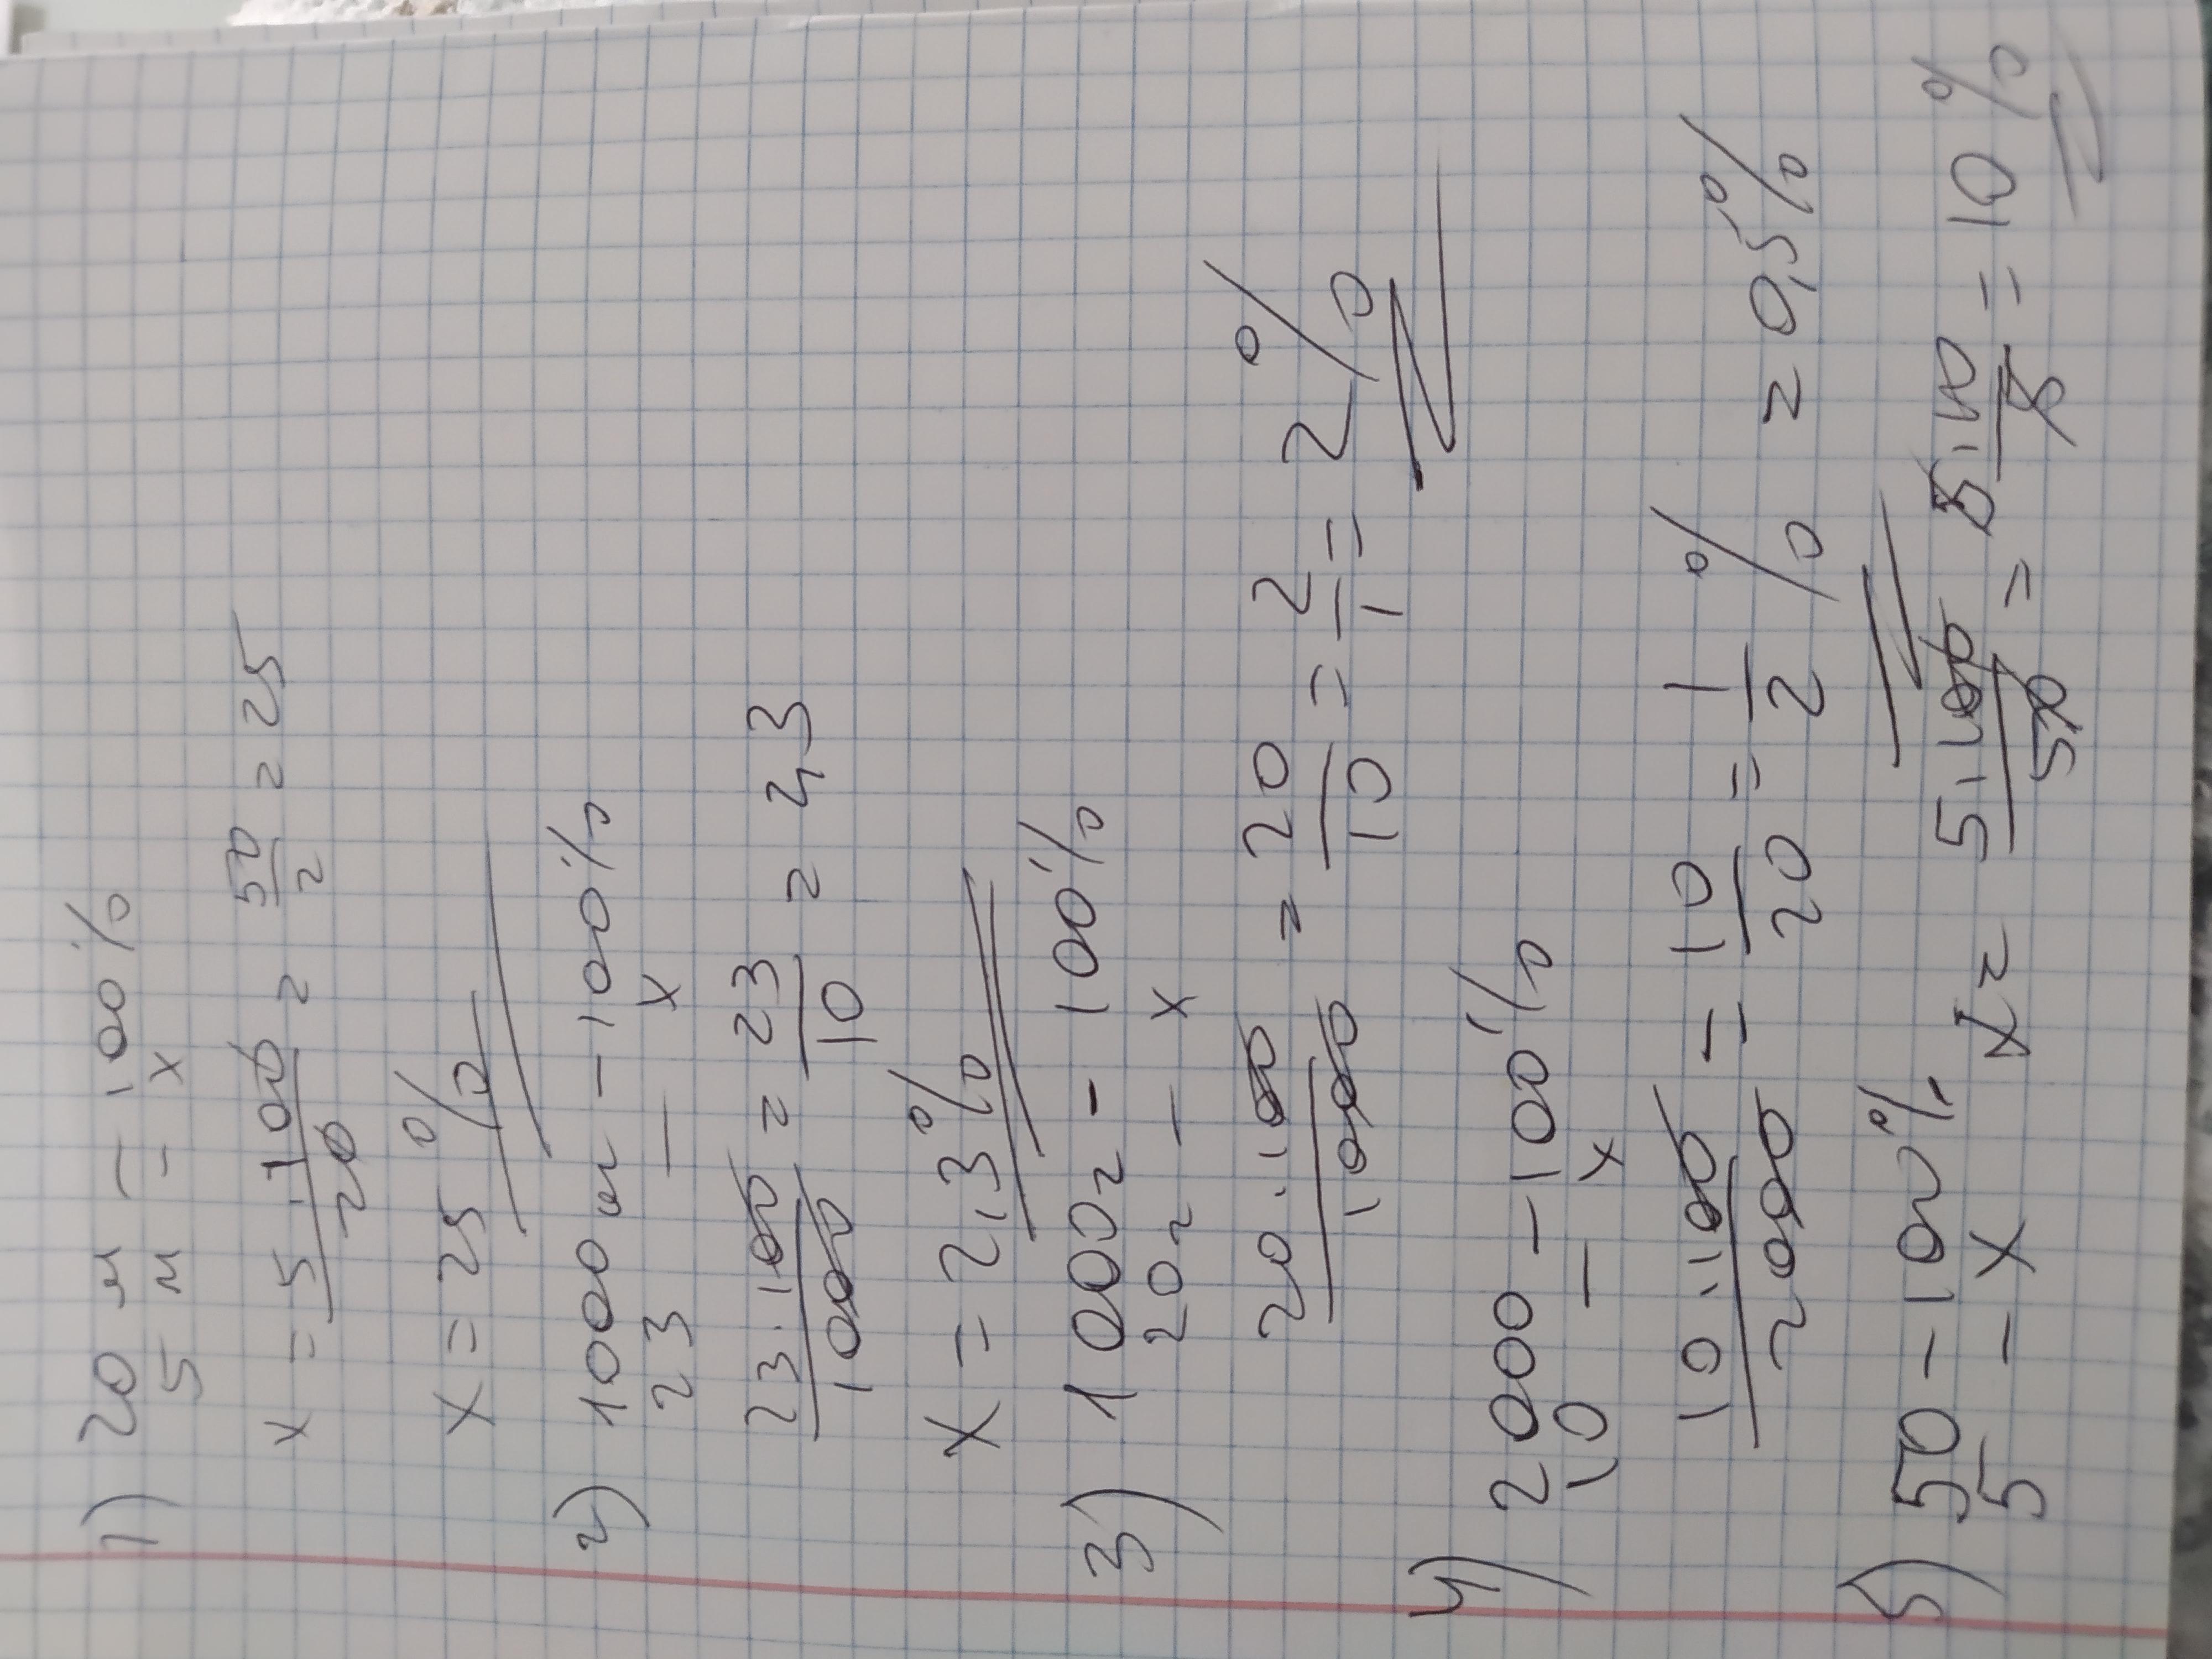 1) 20 м — 100%
5 м — x
x = 5·100/20 = 50/2 = 25
x = 25%
2) 1000 м — 100%
23 — x
23·100/1000 = 23/10 = 2,3
x = 2,3%
3) 1000г — 100%
20г — x
20·100/1000 = 20/10 = 2/1 = 2%
4) 2000 — 100%
10 — x
10·100/2000 = 10/20 = 1/2 % = 0,5%
5) 50 — 100%
5 — x x = 5·100/50 = 5·10/5 = 10%